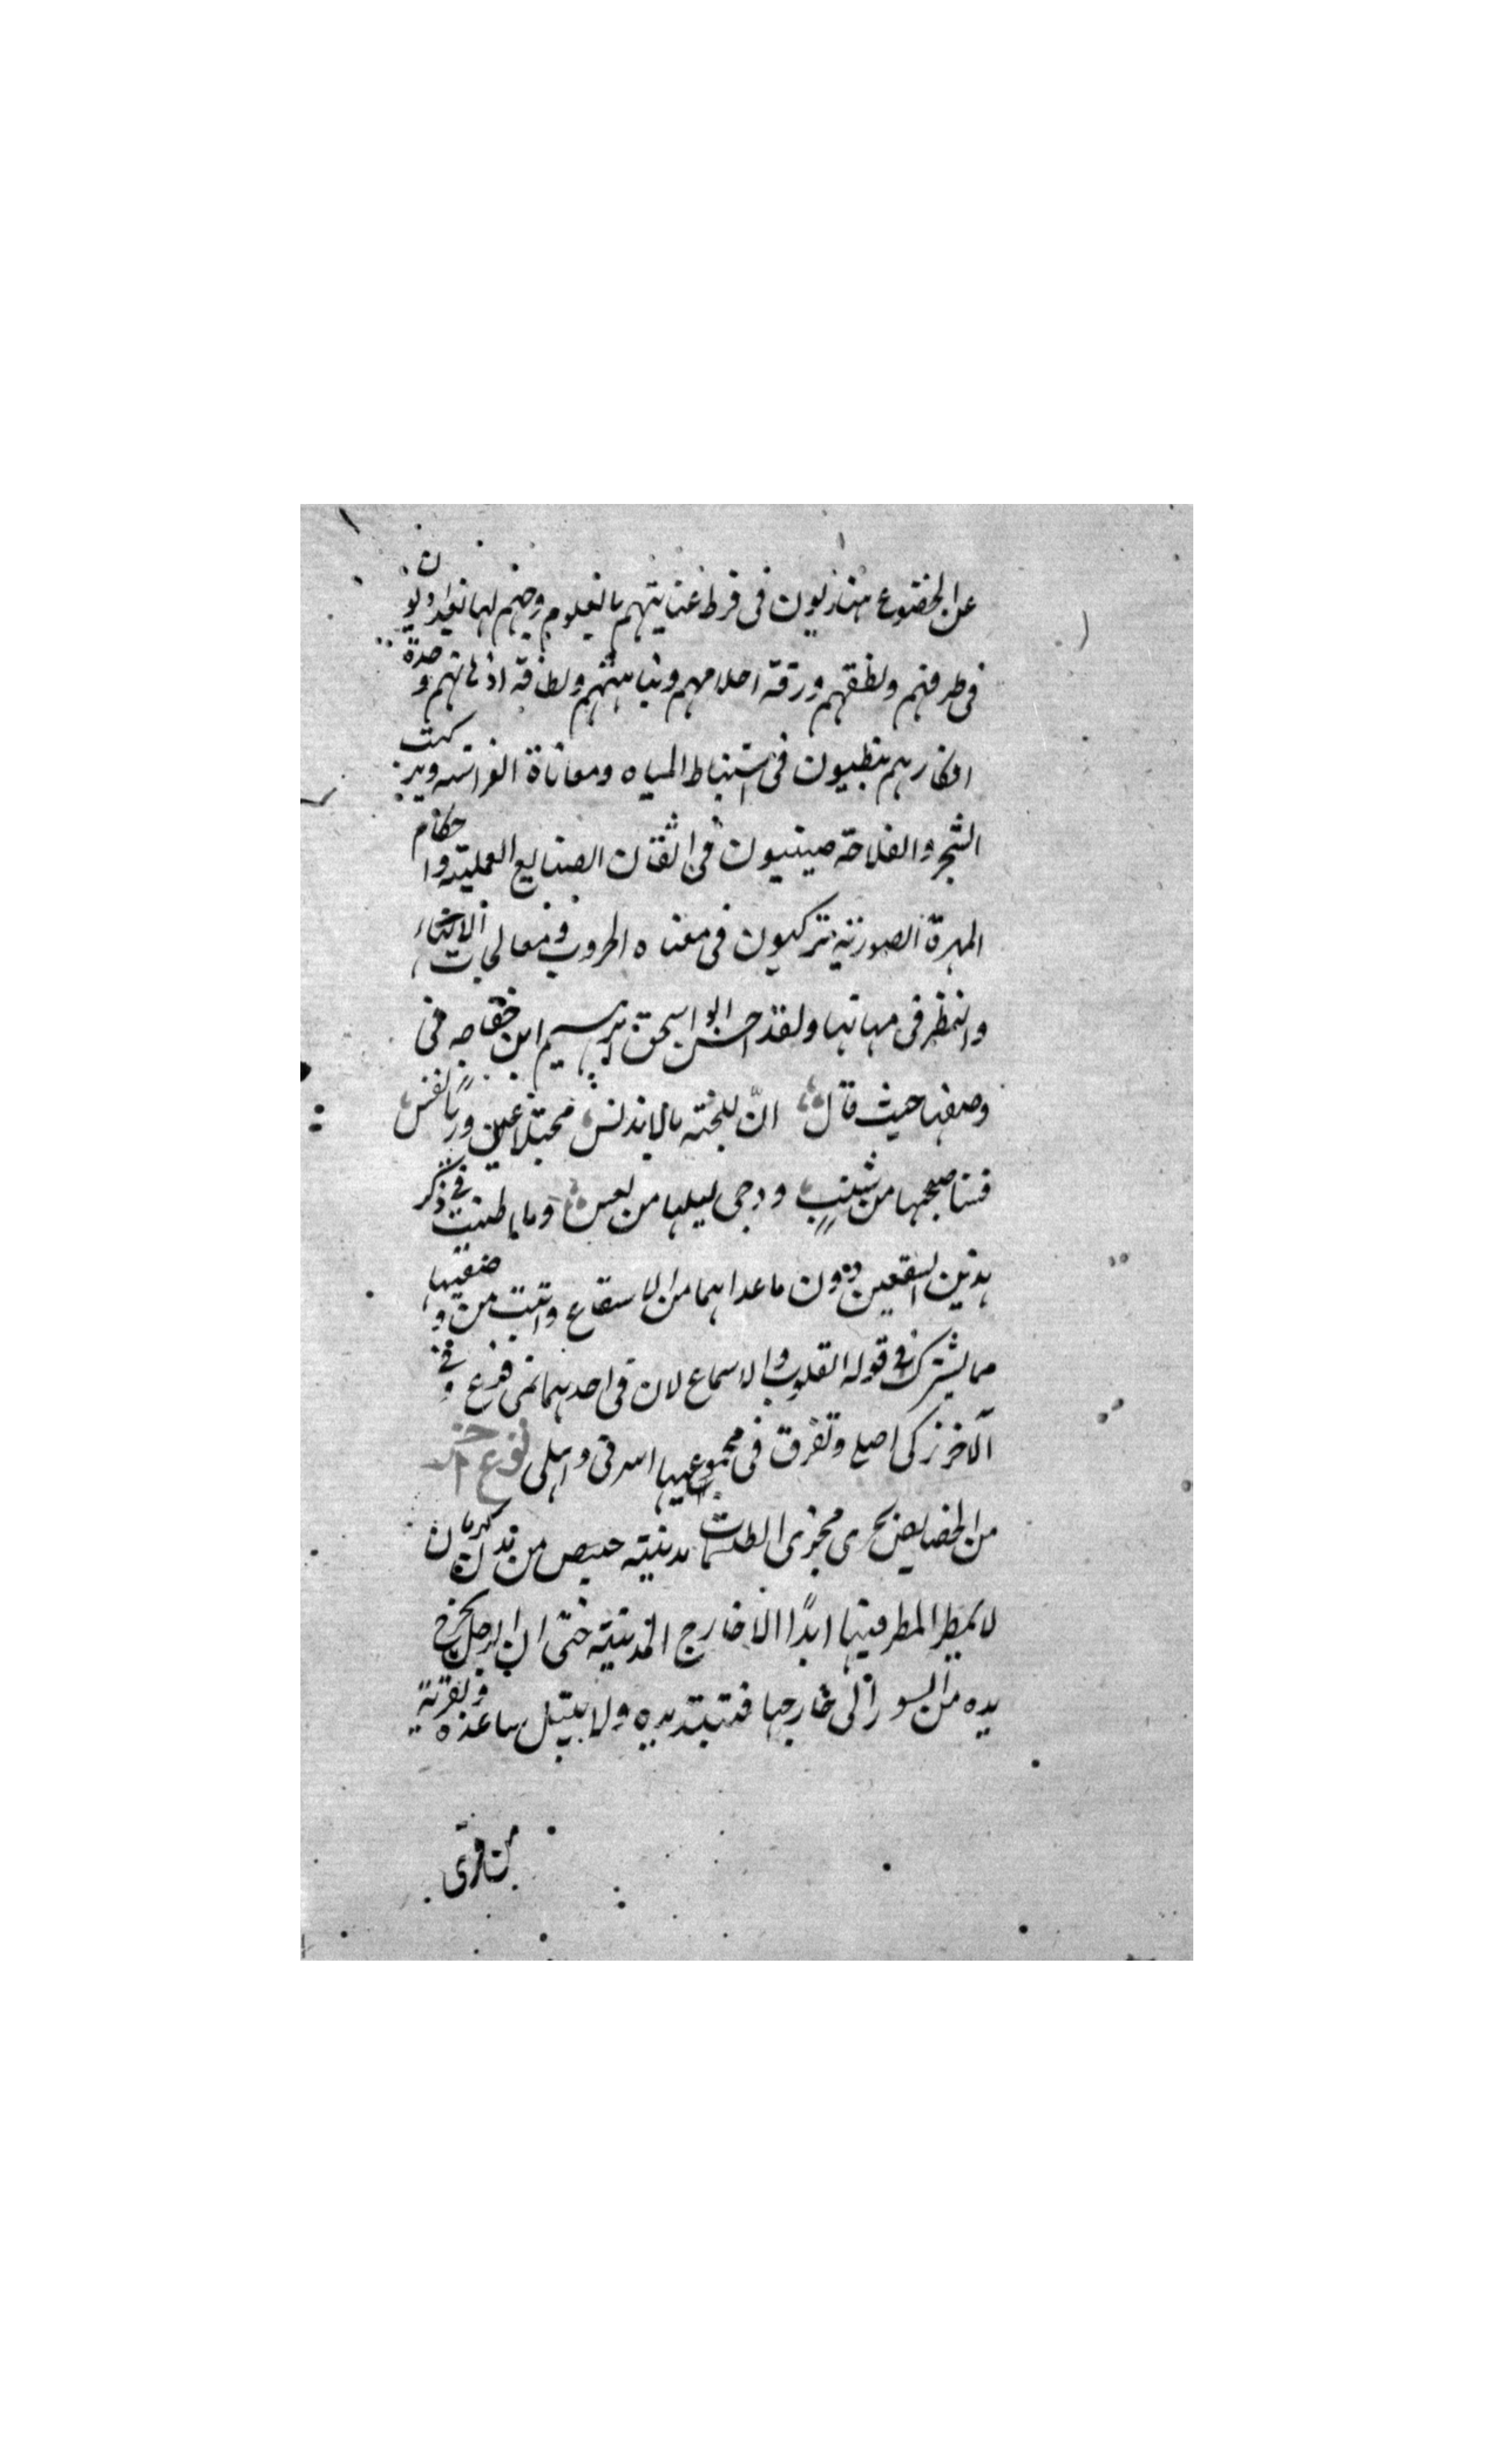 عن الخضوع هنديون فى فرط عنايتهم بالعلوم وحبهم لها بغداديون
فى ظرفهم ولطفهم ورقة احلامهم ونباهتهم ولطافة اذهانهم وحدة
افكارهم نبطيون فى استنباط المياه ومعاناة الغراسه وتركيب
الشجر والفلاحة صينيون فى اتقان الصنايع العملية واحكام
المهرة الصورية تركيون فى معناه الحروب ومعالجات الاتها
والنظر فى مهماتها ولقد احسن ابو اسحق ابرهيم ابن خفاجه فى
وصفها حيث قال ان للجنة بالاندلس مجتلا عين وريا نفس
فسنا صبحها من شنب ودجى ليلها من لعس وما اطنبت فى ذكر
هذين السقعين دون ما عداهما من الاسقاع واتيت من وصفيها
مما يشترك فى قوله القلوب والاسماع لان فى احدهما نمى فرع وفى
الاخر زكى اصلى وتفرق فى مجموعيهما اسرتى واهلى نوع اخر
من الخصايص يجرى مجرى الطلسمات مدينة حبيص من كرمان
لا يمطر المطر فيها ابدًا الا خارج المدينة حتى ان الرجل يخرج
يده من السور الى خارجها فتبتل يده ولا يبتل ساعده وبقرية
من قرى